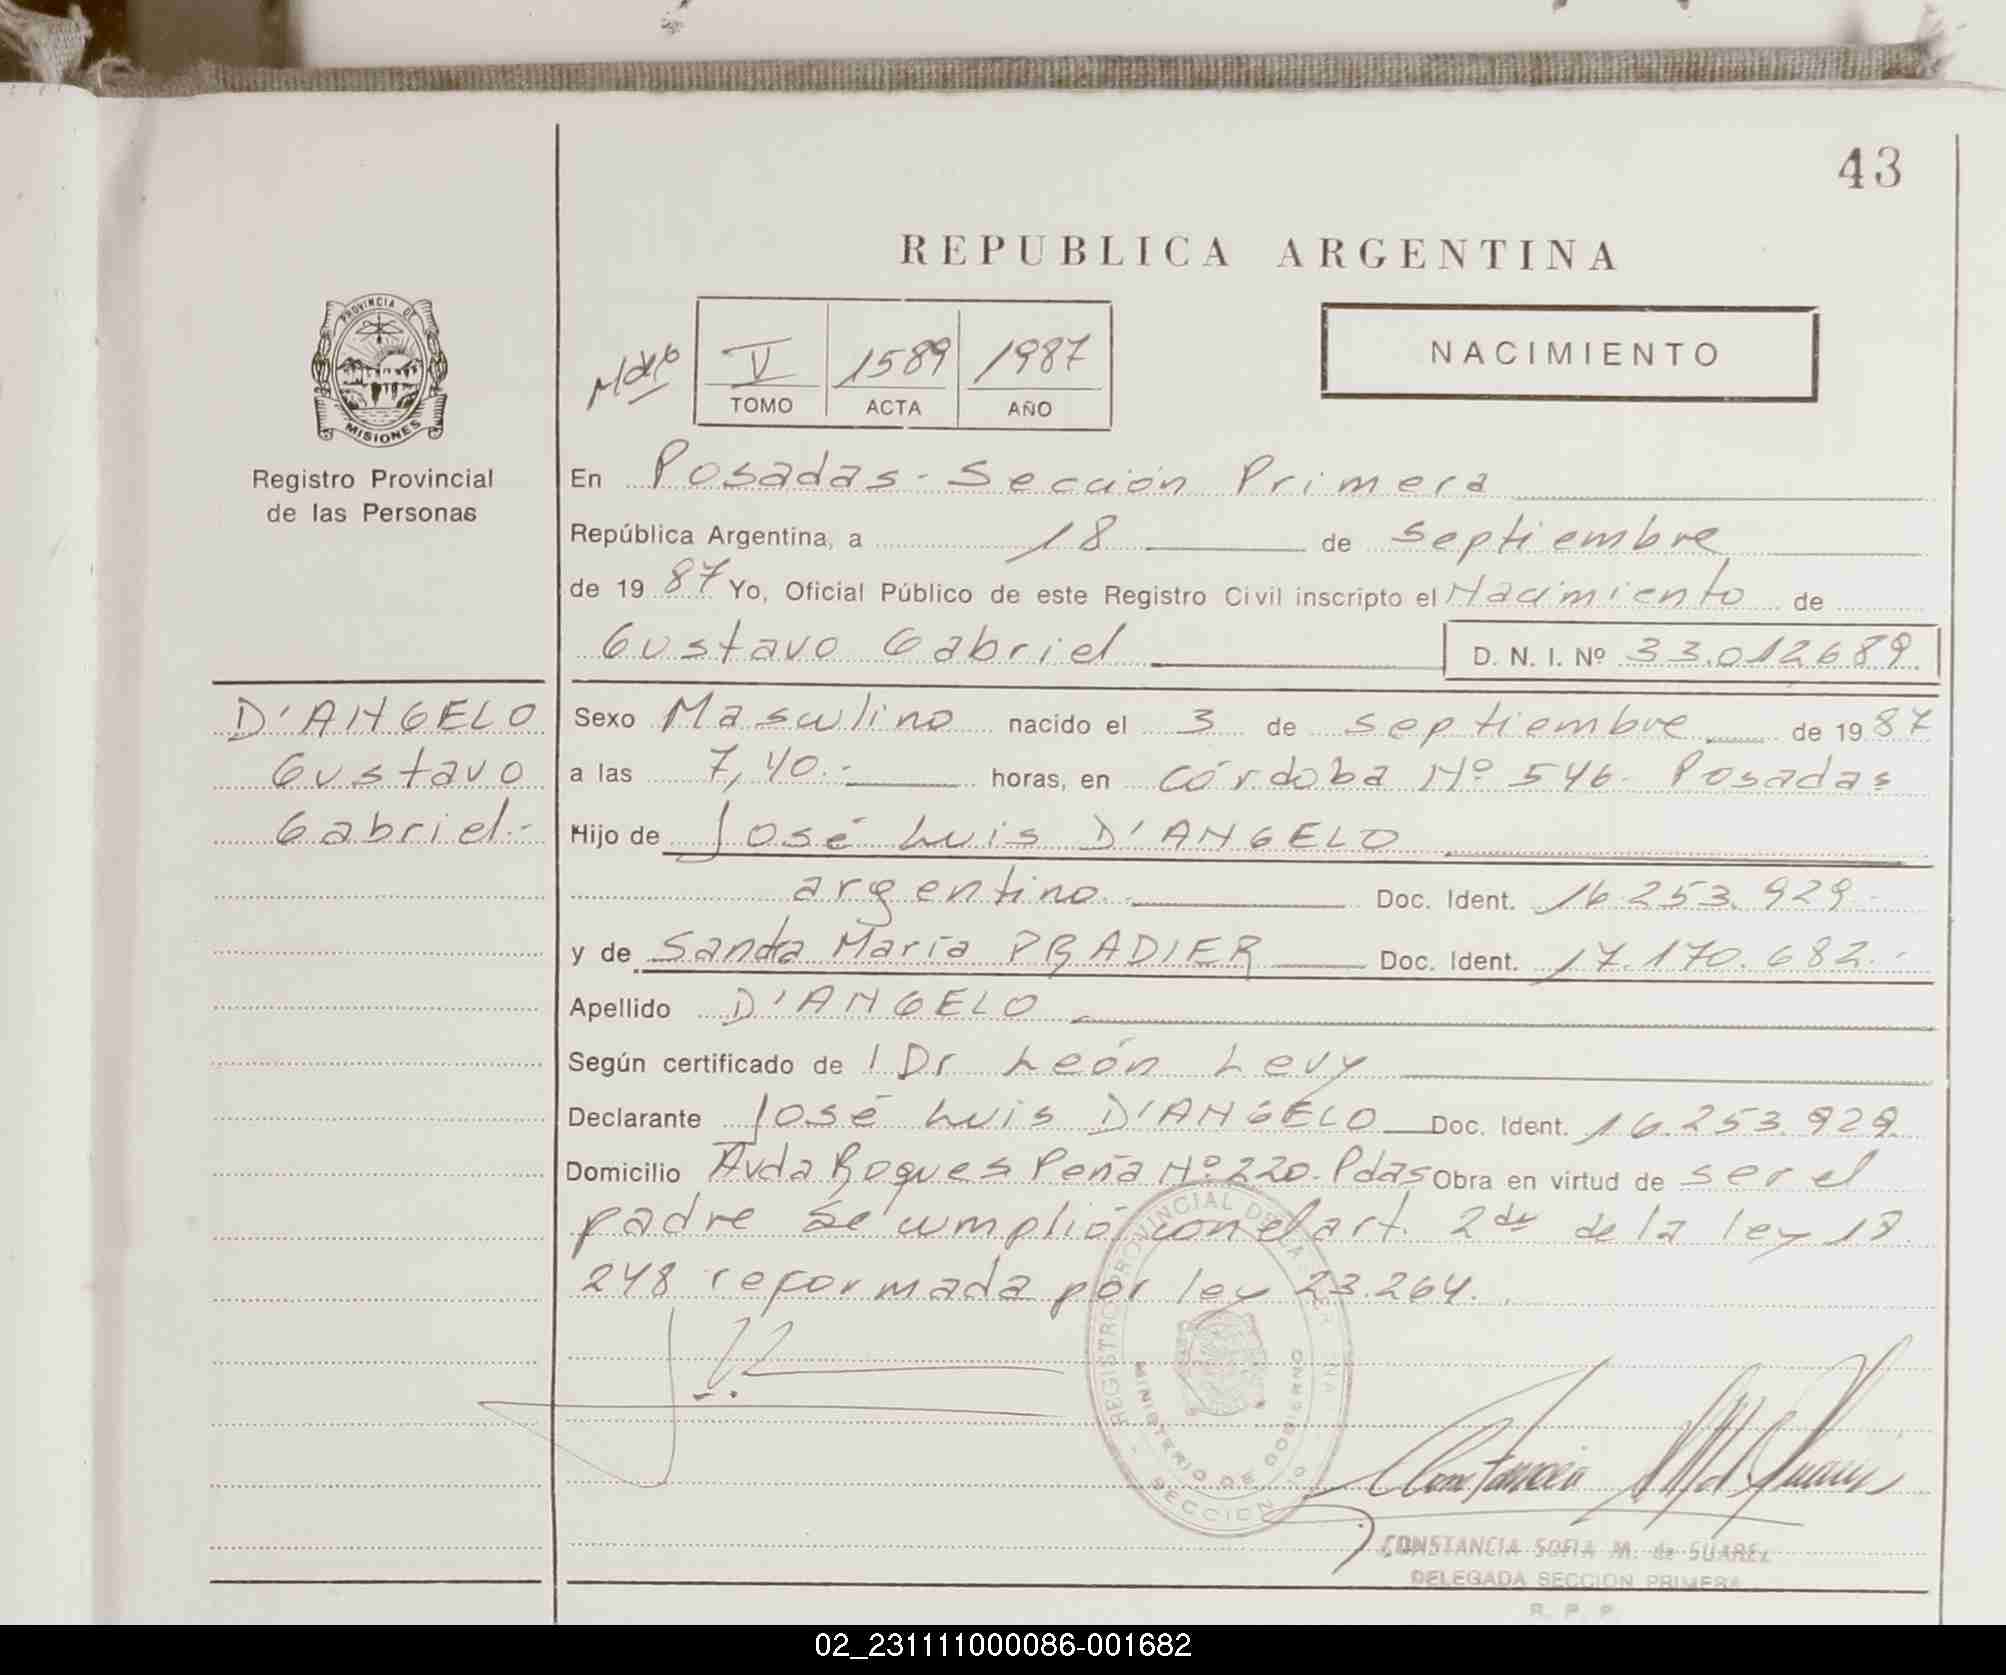 43
REPUBLICA ARGENTINA
PROVINCIA DE
MISIONES
Registro Provincial
de las Personas
V 1589 1987
TOMO ACTA AÑO
NACIMIENTO
En Posadas - Sección Primera
República Argentina, a 18 de septiembre
de 19 87 Yo, Oficial Público de este Registro Civil inscripto el Nacimiento de
Gustavo Gabriel D. N. I. Nº 33.012689
D'ANGELO
Gustavo
Gabriel.-
Sexo Masculino nacido el 3 de septiembre de 19 87
a las 7,40.- horas, en Córdoba Nº 546. Posadas
Hijo de José Luis D'ANGELO
argentino.- Doc. Ident. 16.253.929.-
y de Sandra María PRADIER Doc. Ident. 17.170.682.-
Apellido D'ANGELO
Según certificado de l Dr León Levy
Declarante José Luis D'ANGELO Doc. Ident. 16.253.929
Domicilio Avda Roques Peña Nº 220. Pdas Obra en virtud de ser el
padre Se cumplió con el art. 2do de la ley 18
248 reformada por ley 23.264.
REGISTRO PROVINCIAL DE LAS PERSONAS
MINISTERIO DE GOBIERNO
SECCION
CONSTANCIA SOFIA M. de SUAREZ
DELEGADA SECCION PRIMERA
R. P. P.
02_231111000086-001682